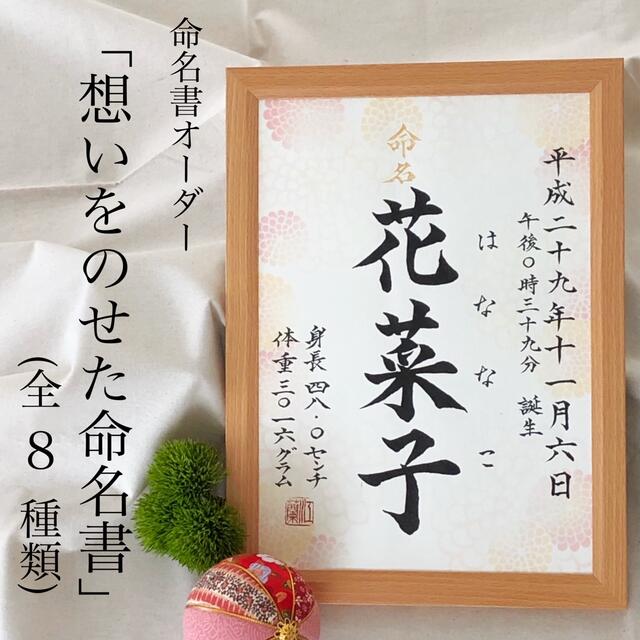 命名書オーダー
「想いをのせた命名書」
(全8種類)
平成二十九年十一月六日
午後〇時三十九分 誕生
はななこ
命名
花菜子
身長 四八・〇センチ
体重 三〇一六グラム